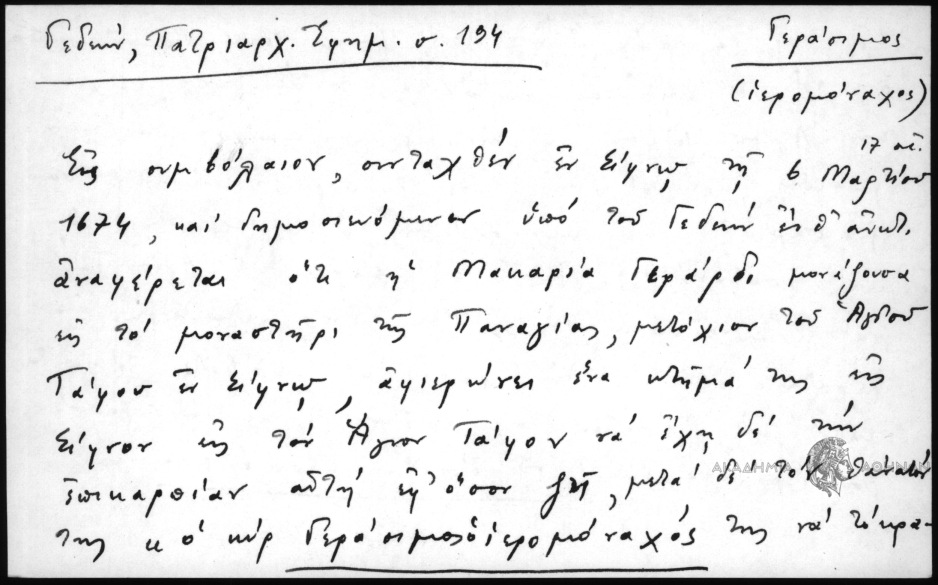 Γεδεών, Πατριαρχ. Ἐφημ. σ. 194
Γεράσιμος
(ἱερομόναχος)
17 αἰ.
Εἰς συμβόλαιον, συνταχθέν ἐν Σίφνῳ τῇ 6 Μαρτίου
1674, καί δημοσιευόμενον ὑπό τοῦ Γεδεών ἔνθ' ἀνωτ.
ἀναφέρεται ὅτι ἡ Μακαρία Γεράρδι μονάζουσα
εἰς τό μοναστῆρι τῆς Παναγίας, μετόχιον τοῦ Ἁγίου
Τάφου ἐν Σίφνῳ, ἀφιερώνει ἕνα κτῆμά της εἰς
Σίφνον εἰς τόν Ἅγιον Τάφον νά ἔχῃ δέ τήν
ΑΚΑΔΗΜΙΑ ΑΘΗΝΩΝ
ἐπικαρπίαν αὐτή ἐφ' ὅσον ζῇ, μετά δέ τόν θάνατόν
της κ ὁ κύρ Γεράσιμος ὁ ἱερομόναχός της νά τό κρα-